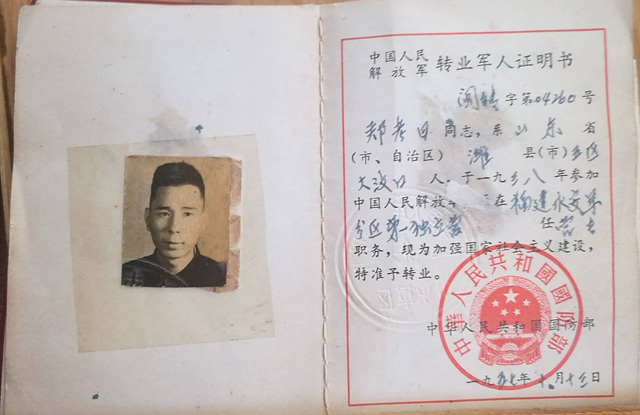 中国人民
解放军 转业军人证明书
闽转字第04260号
郑孝日同志，系山东省
(市、自治区) 潍县(市)乡区
大 口人。于一九 八年参加
中国人民解放 在福建永安军
分区第一独立营任营长
职务，现为加强国家社会主义建设，
特准予转业。
中华人民共和国国防部
一九五七年 十月十三日
中華人民共和國國防部